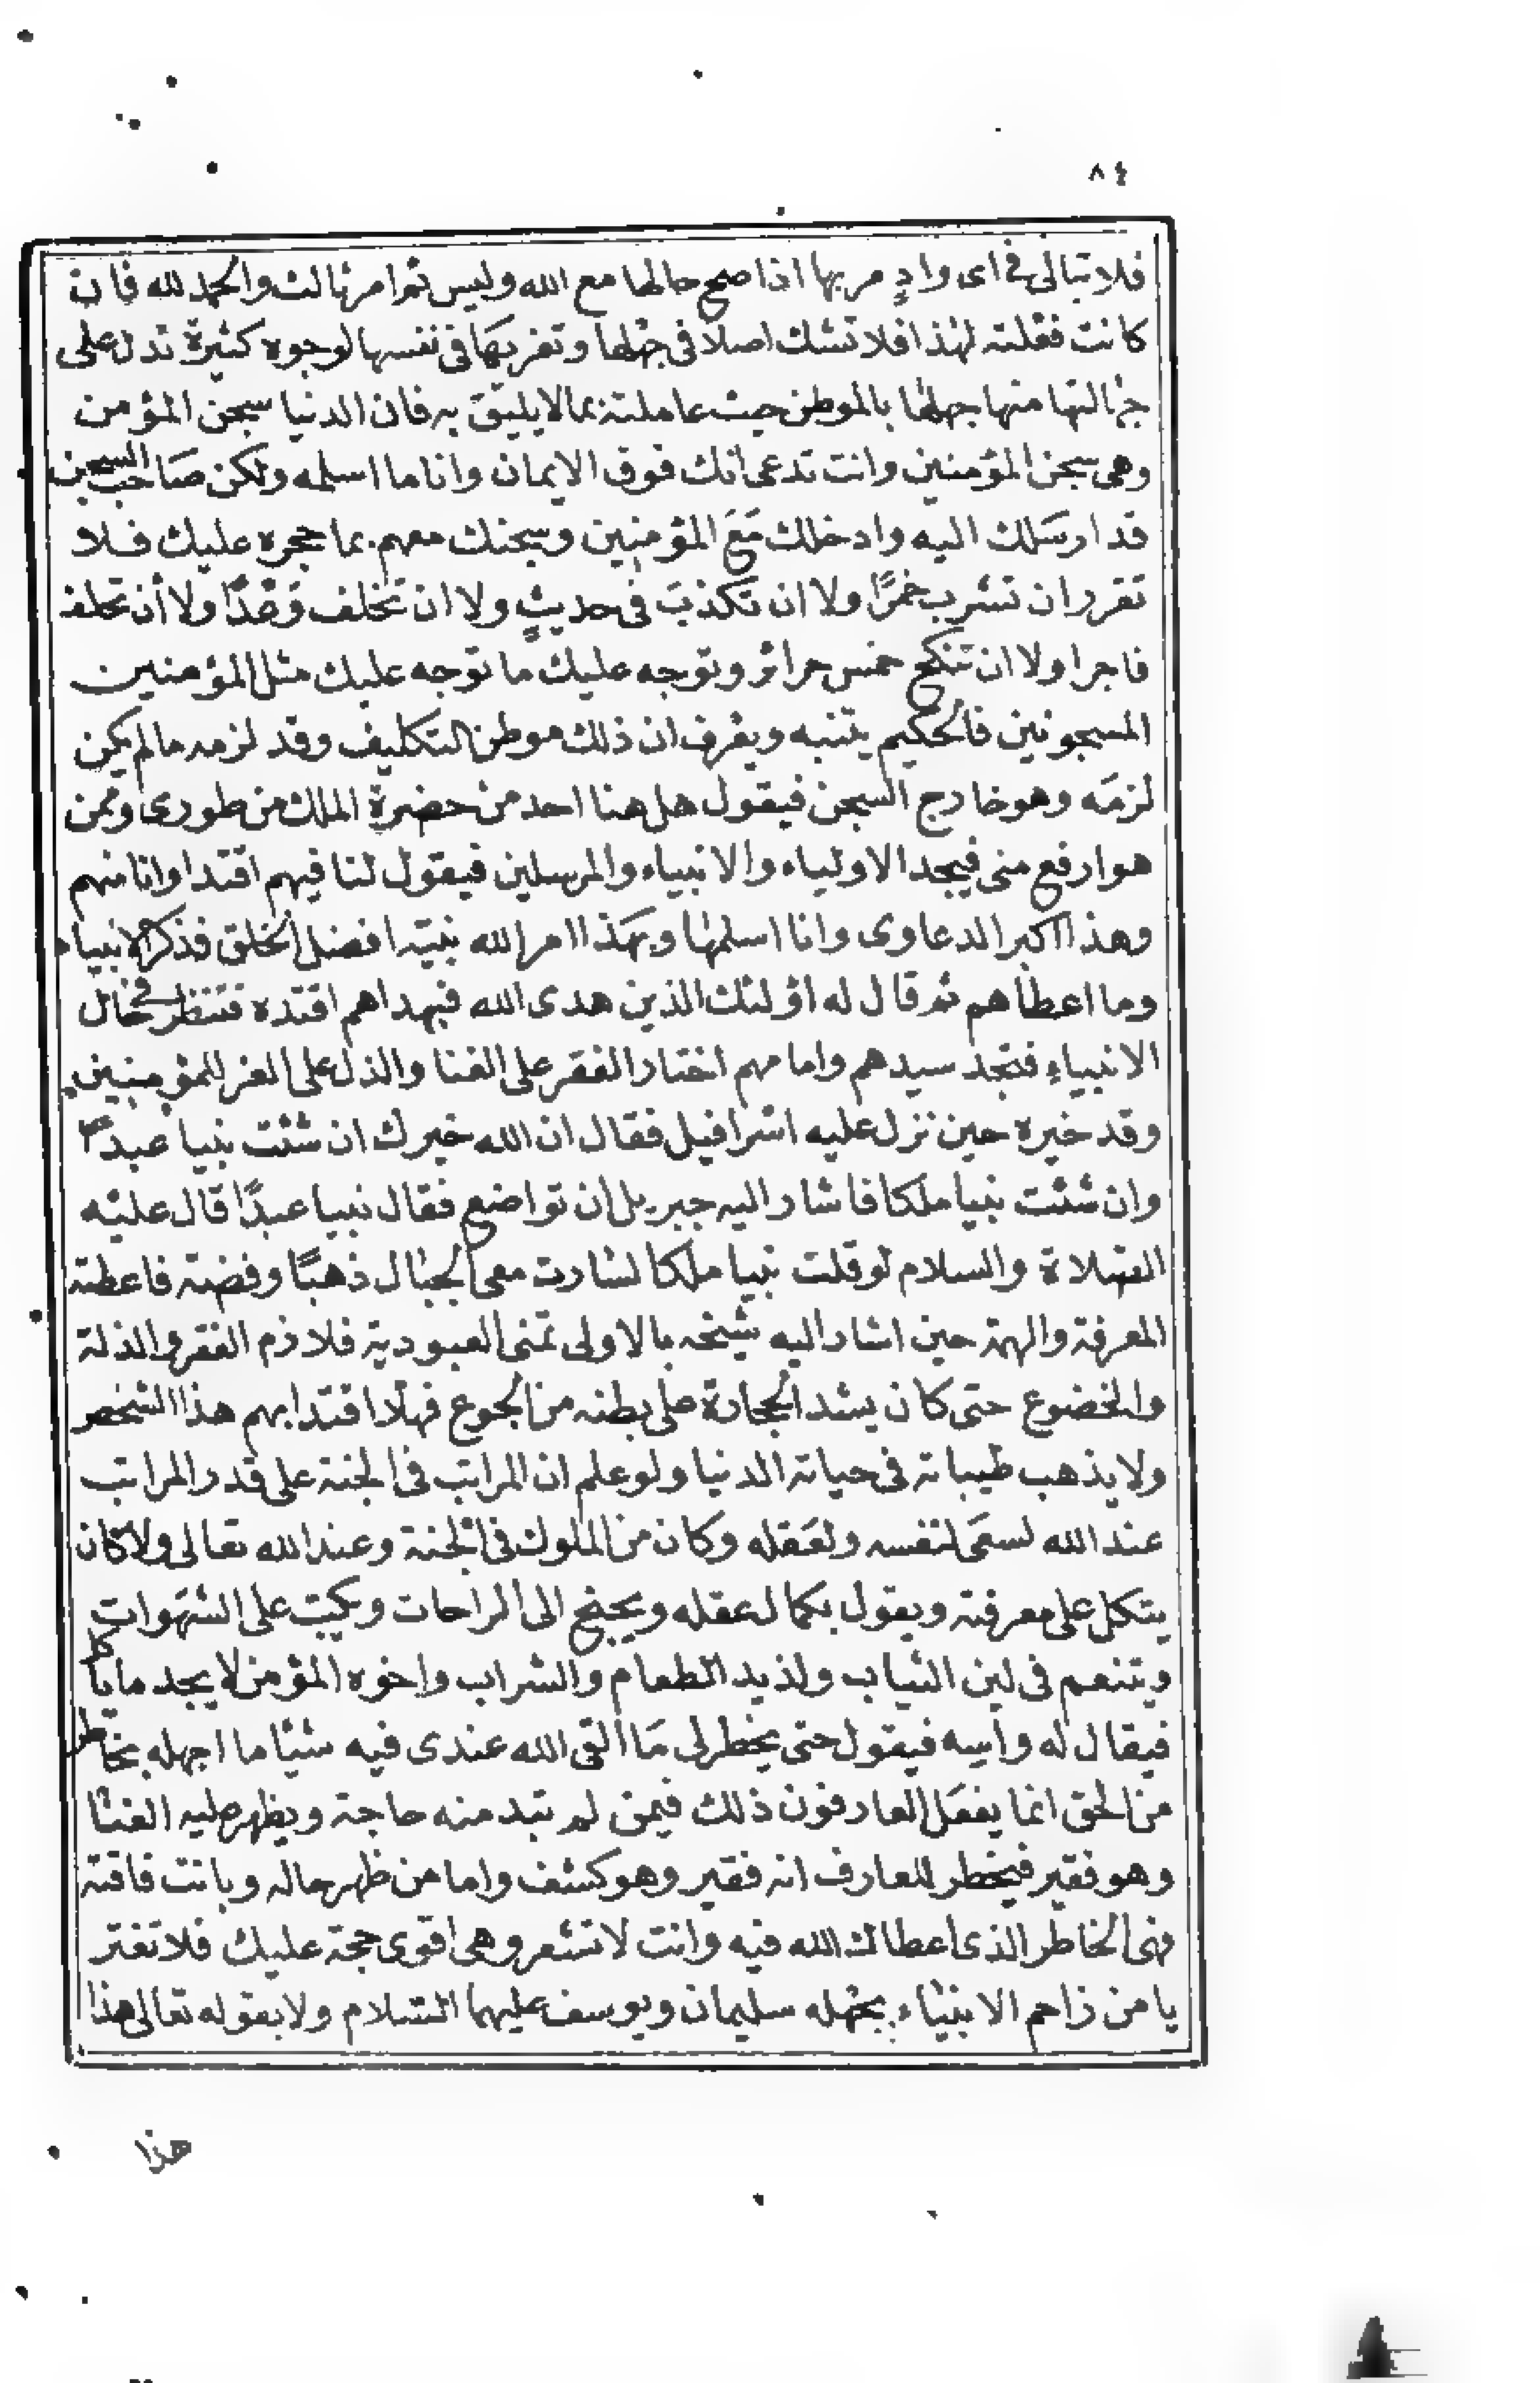 ٨٤
فلا تبالى فى اى وادٍ مر بها اذا صح حالها مع الله وليس ثم امر ثالث والحمد لله فان
كانت فعلته لهذا فلا تشك اصلا فى جهلها وتغربها فى نفسها لوجوه كثيرة تدل على
جهالتها منها جهلها بالموطن حيث عاملته بما لا يليق به فان الدنيا سجن المؤمن
وهى سجن المؤمنين وانت تدعى انك فوق الايمان وانا ما اسلمه ولكن صاحب السجن
قد ارسلك اليه وادخلك مع المؤمنين وسجنك معهم بما حجره عليك فلا
تقرر ان تشرب خمرًا ولا ان تكذب فى حديثٍ ولا ان تخلف وعدًا ولا أن تحلف
فاجرا ولا ان تنكح خمس حرائر وتوجه عليك ما توجه عليك مثل المؤمنين
المسجونين فالحكيم يتنبه ويعرف ان ذلك موطن التكليف وقد لزمه ما لم يكن
لزمه وهو خارج السجن فيقول هل هنا احد من حضرة الملك من طورى وممن
هو ارفع منى فيجد الاولياء والانبياء والمرسلين فيقول لنا فيهم اقتدا وانا منهم
وهذا اكبر الدعاوى وانا اسلمها وبهذا امر الله نبيّه افضل الخلق فذكر الانبياء
وما اعطاهم ثم قال له اؤلئك الذين هدى الله فبهداهم اقتده فتنظر فى حال
الانبياءِ فتجد سيدهم وامامهم اختار الفقر على الغنا والذل على العز للمؤمنين
وقد خيره حين نزل عليه اسرافيل فقال ان الله خيرك ان شئت نبيا عبدًا
وان شئت نبيا ملكا فاشار اليه جبريل ان تواضع فقال نبيا عبدًا قال عليه
الصلاة والسلام لو قلت نبيا ملكا لسارت معى الجبال ذهبًا وفضة فاعطته
المعرفة والهمة حين اشار اليه شيخه بالاولى تمنى العبودية فلازم الفقر والذلة
والخضوع حتى كان يشد الحجارة على بطنه من الجوع فهلا اقتدا بهم هذا الشخص
ولا يذهب طيباته فى حياته الدنيا ولو علم ان المراتب فى الجنة على قدر المراتب
عند الله لسعى لنفسه ولعقله وكان من الملوك فى الجنة وعند الله تعالى ولا كان
يتكل على معرفته ويقول بكمال عقله ويجنح الى الراحات ويكبّ على الشهوات
ويتنعم فى لين الثياب ولذيد الطعام والشراب واخوه المؤمن لا يجد ما ياكل
فيقال له واسِه فيقول حتى يخطر لى مَا القى الله عندى فيه شيًا ما اجهله بخاطر
من الحق انما يفعل العارفون ذلك فيمن لم تبد منه حاجة ويظهر عليه الغنا
وهو فقير فيخطر للعارف انه فقير وهو كشف واما من ظهر حاله وبانت فاقته
فهى الخاطر الذى اعطاك الله فيه وانت لا تشعر وهى اقوى حجة عليك فلا تغتر
يا من زاحم الانبياء بجهله سليمان ويوسف عليهما السلام ولا بقوله تعالى هذا
هذا